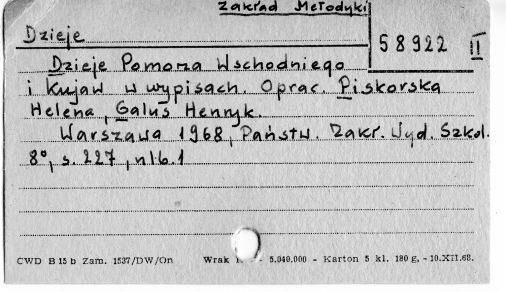 Zakład Metodyki
Dzieje
58922 II
Dzieje Pomorza Wschodniego
i Kujaw w wypisach. Oprac. Piskorska
Helena, Galus Henryk.
Warszawa 1968, Państw. Zakł. Wyd. Szkol.
8°, s. 227, nlb. 1
CWD B 15 b Zam. 1537/DW/On Wrak - 5.040.000 - Karton 5 kl. 180 g. - 10.XII.68.